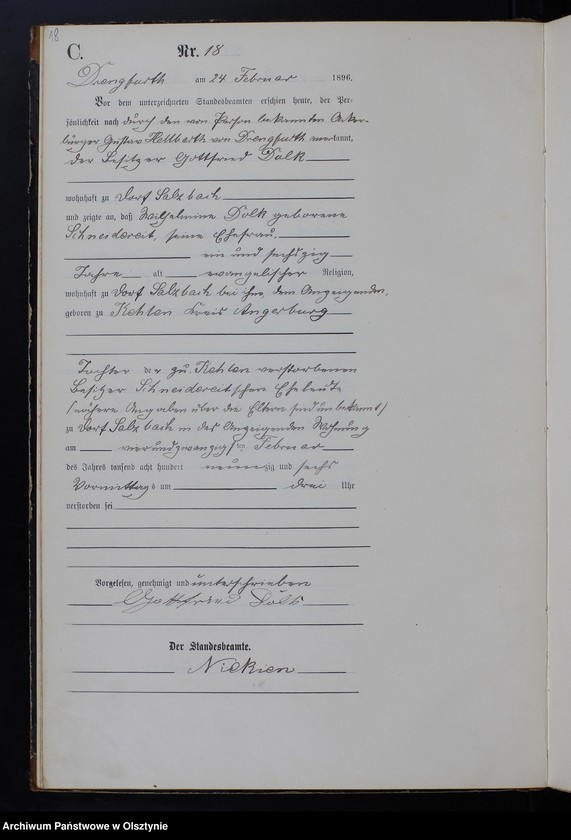 18
C. Nr. 18
Drengfurth am 24 Februar 1896.
Vor dem unterzeichneten Standesbeamten erschien heute, der Per-
sönlichkeit nach durch den von Person bekannten Acker-
bürger Gustav Hellbarth von Drengfurth anerkannt,
der Besitzer Gottfried Dolk
wohnhaft zu Dorf Salzbach
und zeigte an, daß Wilhelmine Dolk geborene
Schneidereit, seine Ehefrau,
ein und sechszig
Jahre alt evangelischer Religion,
wohnhaft zu Dorf Salzbach bei ihm, dem Anzeigenden,
geboren zu Kehlen Kreis Angerburg
Tochter der zu Kehlen verstorbenen
Besitzer Schneidereit'schen Eheleute
(nähere Angaben über die Eltern sind unbekannt)
zu Dorf Salzbach in des Anzeigenden Wohnung
am vierundzwanzigsten Februar
des Jahres tausend acht hundert neunzig und sechs
Vormittags um drei Uhr
verstorben sei
Vorgelesen, genehmigt und unterschrieben
Gottfried
Der Standesbeamte.
Archiwum Państwowe w Olsztynie